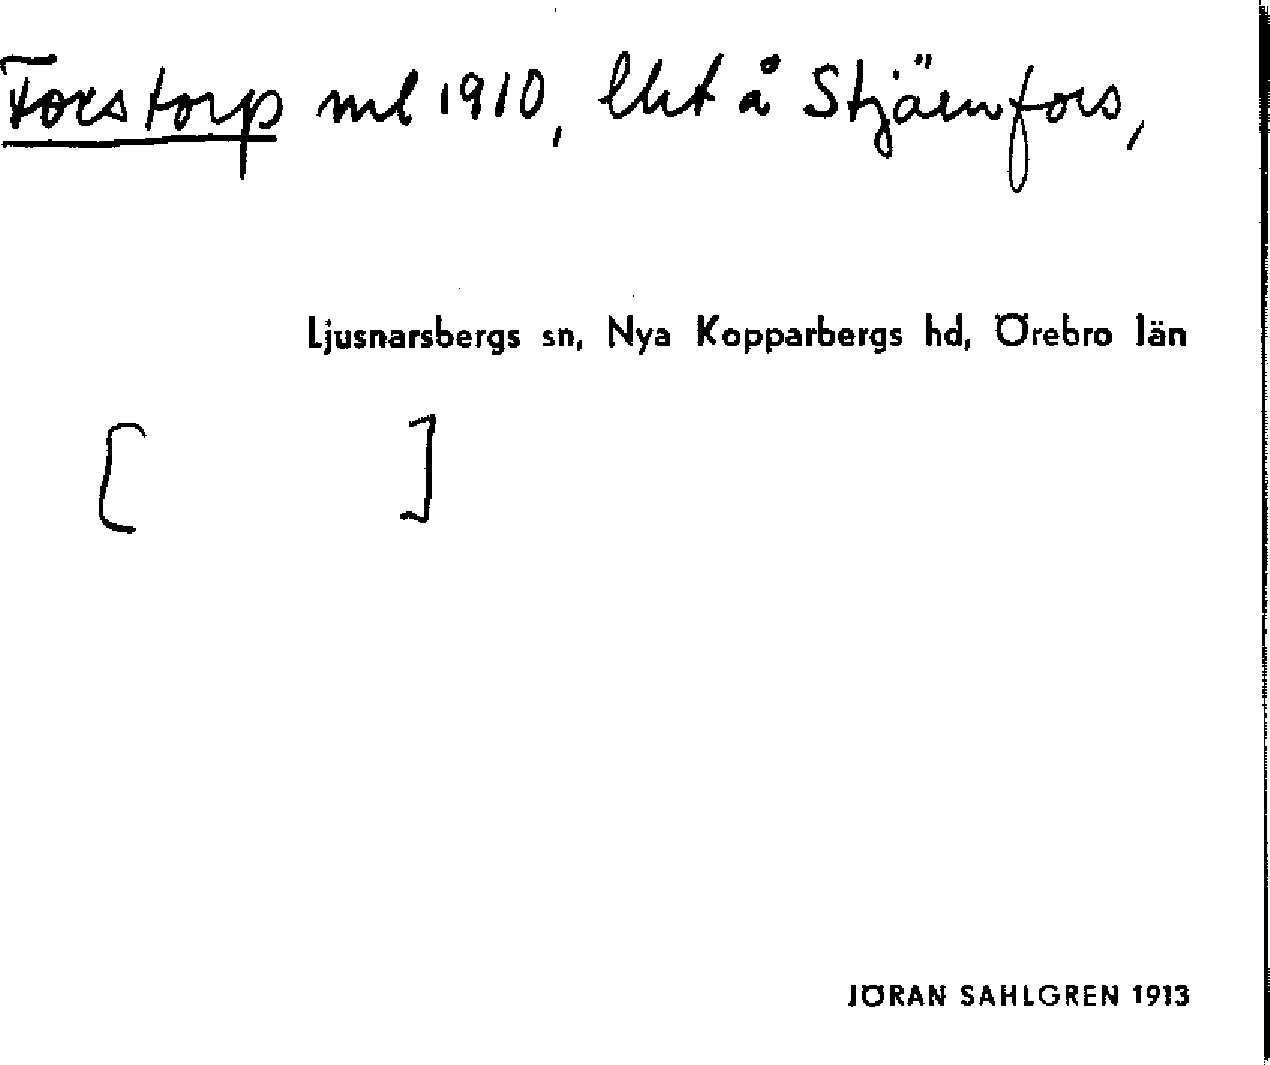 Forstorp ml 1910, lht å Stjärnfors,
Ljusnarsbergs sn, Nya Kopparbergs hd, Örebro län
[ ]
JÖRAN SAHLGREN 1913